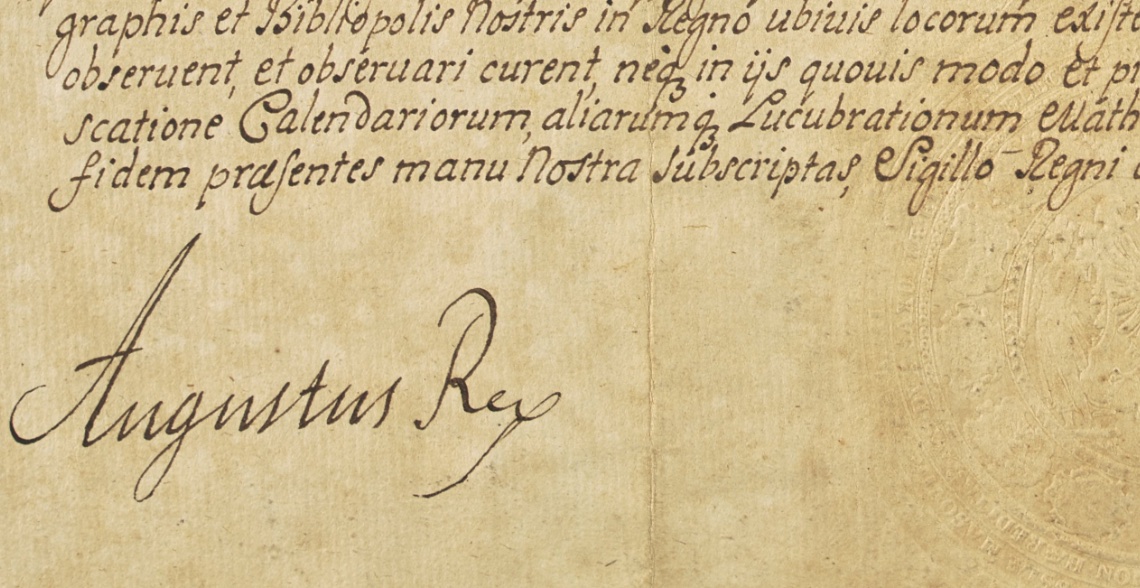 graphis et Bibliopolis Nostris in Regno ubivis locorum existe
observent, et observari curent, neq₃ in ijs quovis modo et pr
scatione Calendariorum, aliarumq₃ Lucubrationum Math
fidem præsentes manu Nostra subscriptas, Sigillo Regni
Augustus Rex